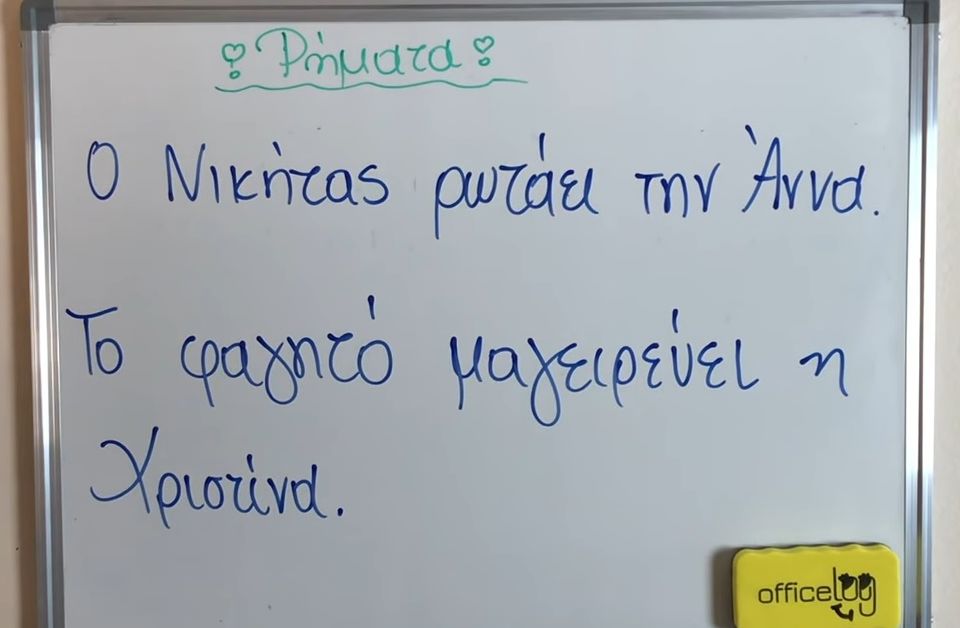 Ρήματα
Ο Νικήτας ρωτάει την Άννα.
Το φαγητό μαγειρεύει η
Χριστίνα.
officelog